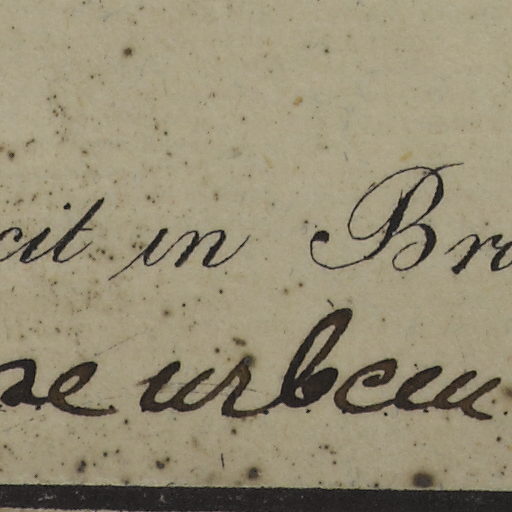 cit in Bra
ae urbem